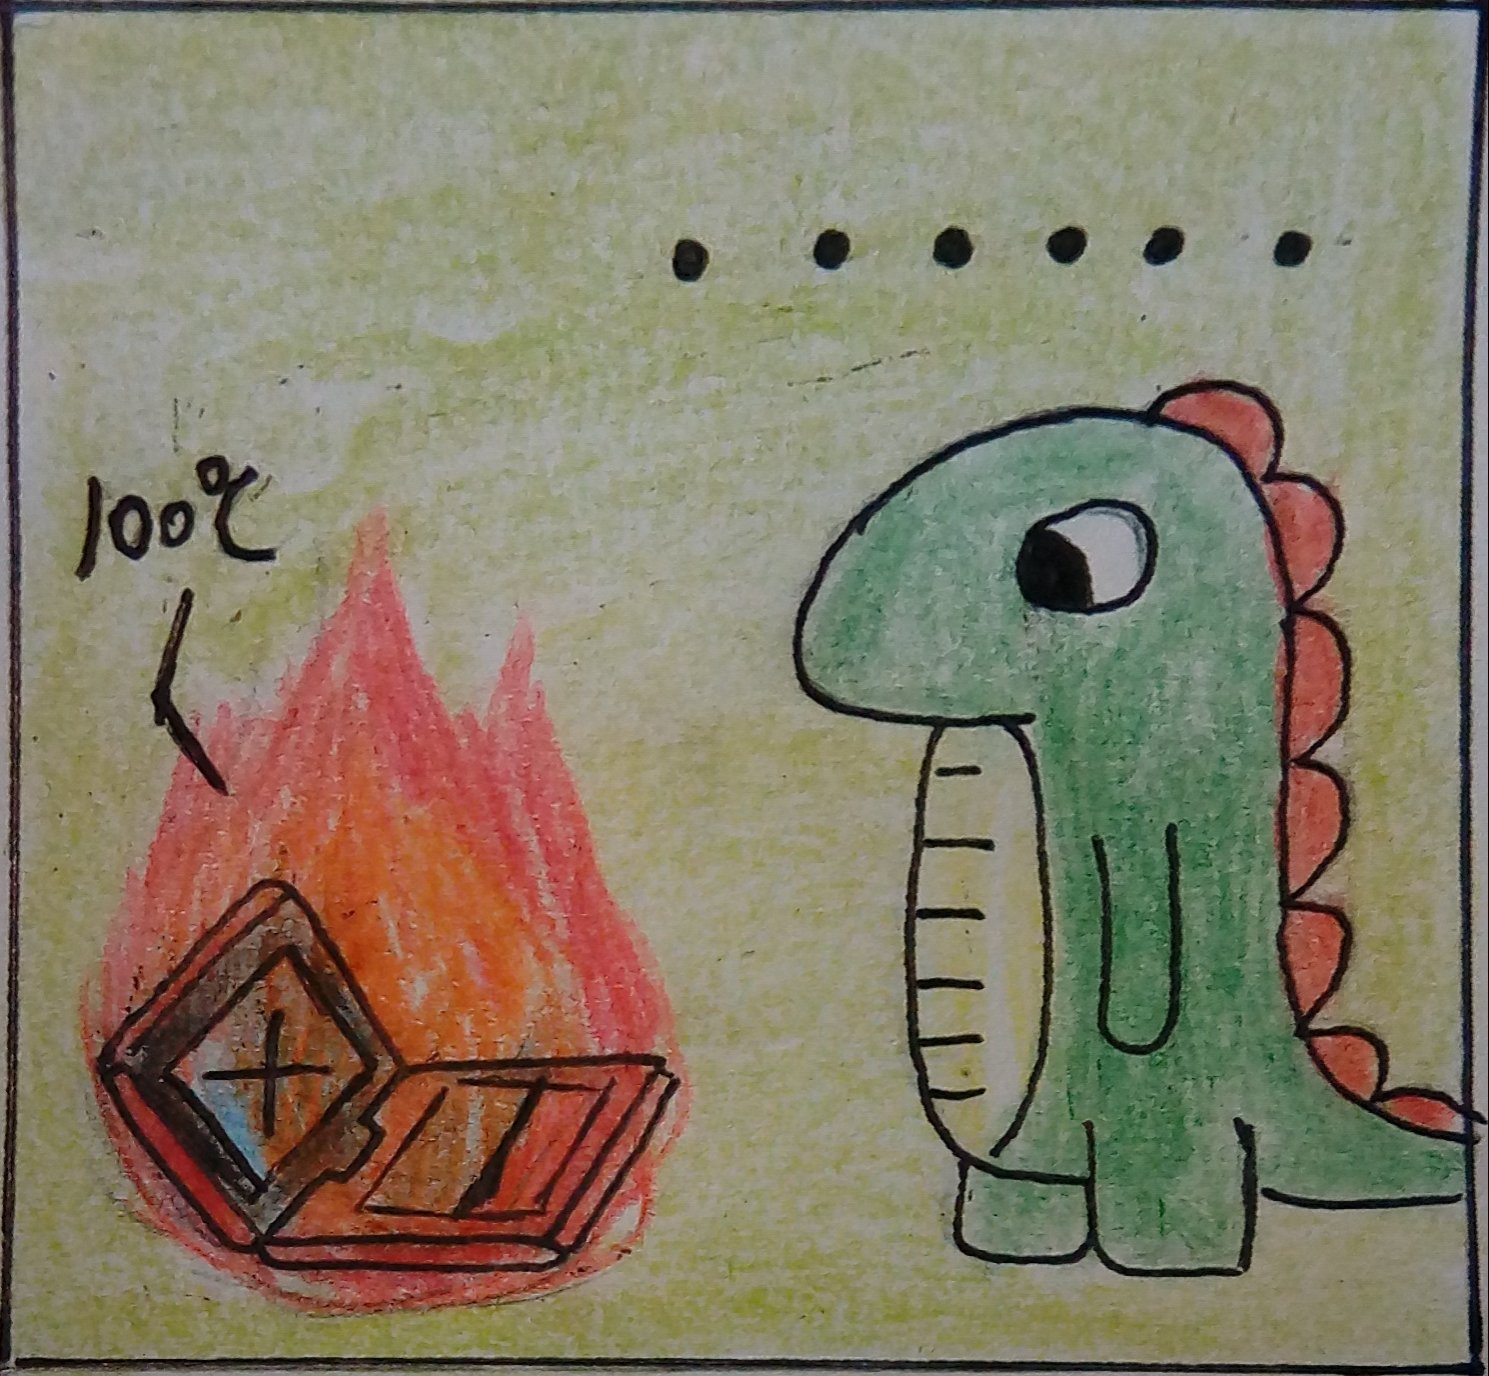 ......
100℃